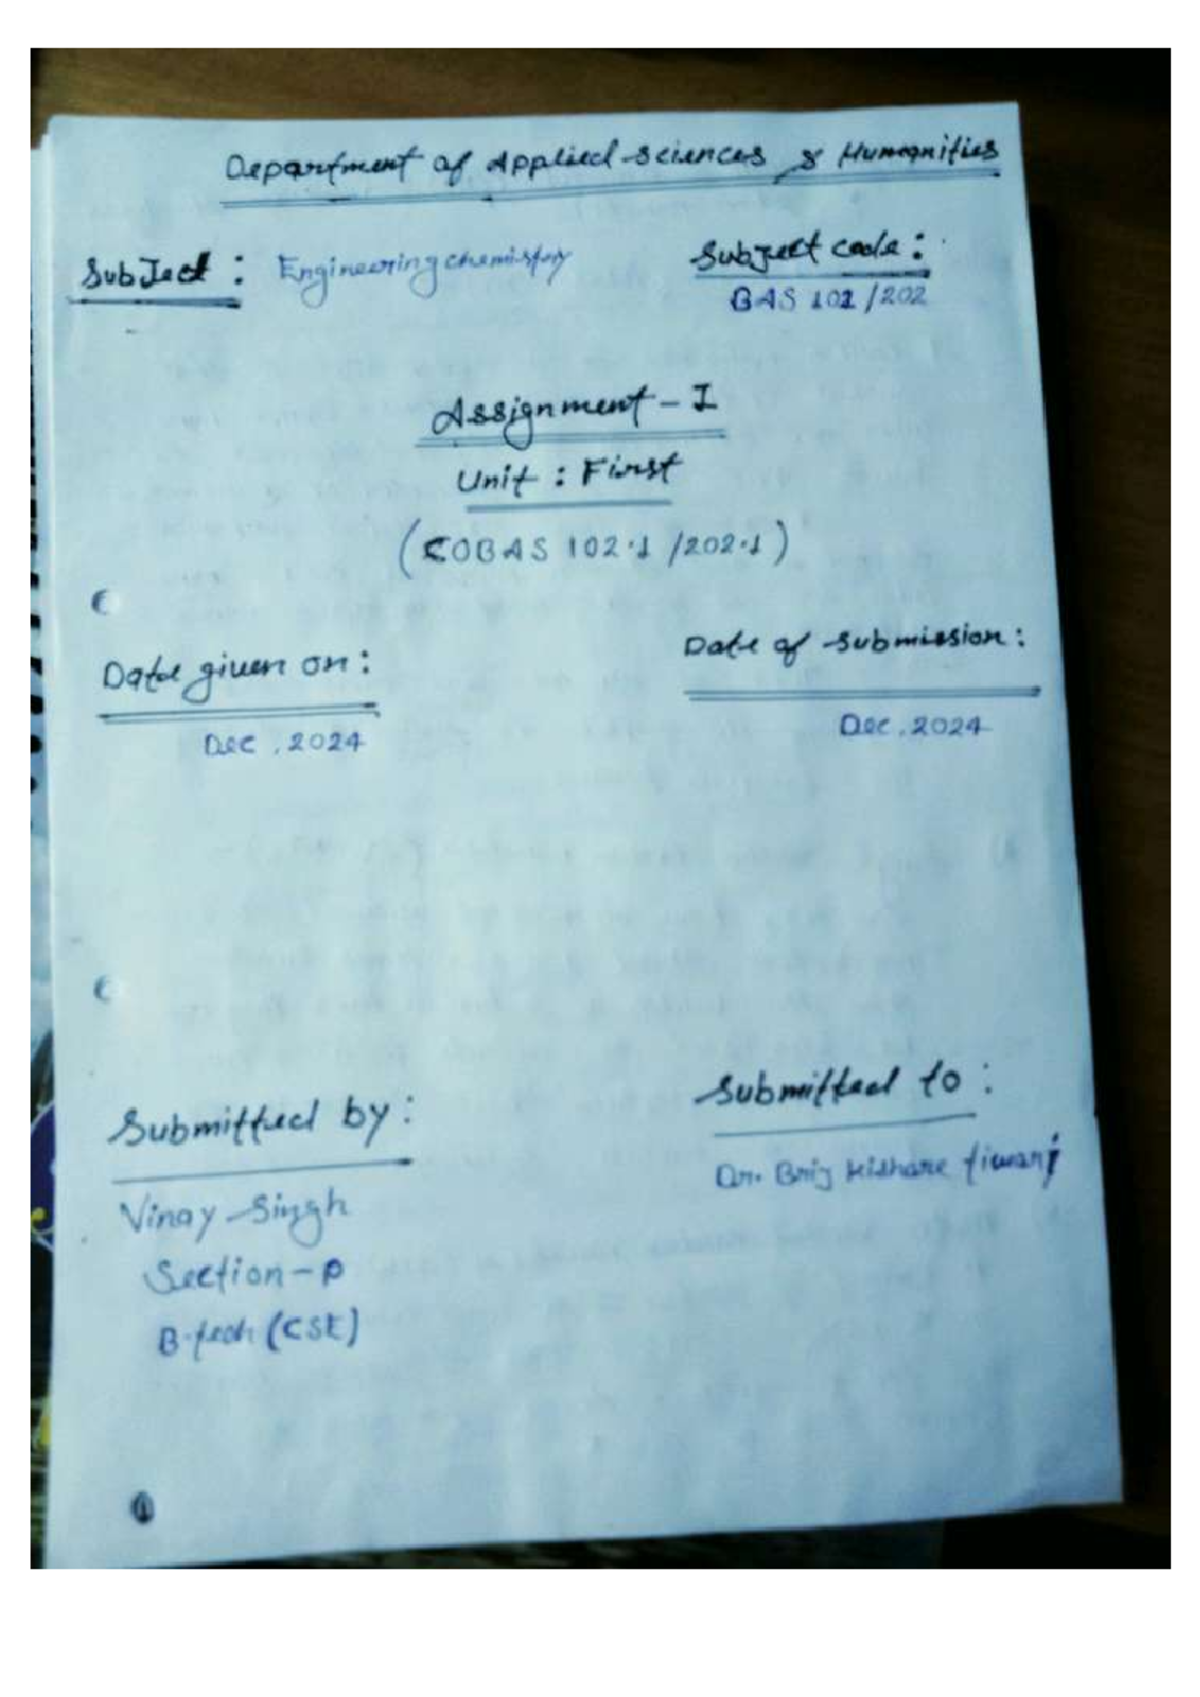 Department of Applied Sciences & Humanities
Subject : Engineering chemistry
Subject code :
BAS 102 /202
Assignment - I
Unit : First
(COBAS 102.1 /202.1)
Date given on :
Dec , 2024
Date of submission :
Dec , 2024
Submitted by :
Vinay Singh
Section - P
B.tech (CSE)
Submitted to :
Dr. Brij Kishare tiwari
1